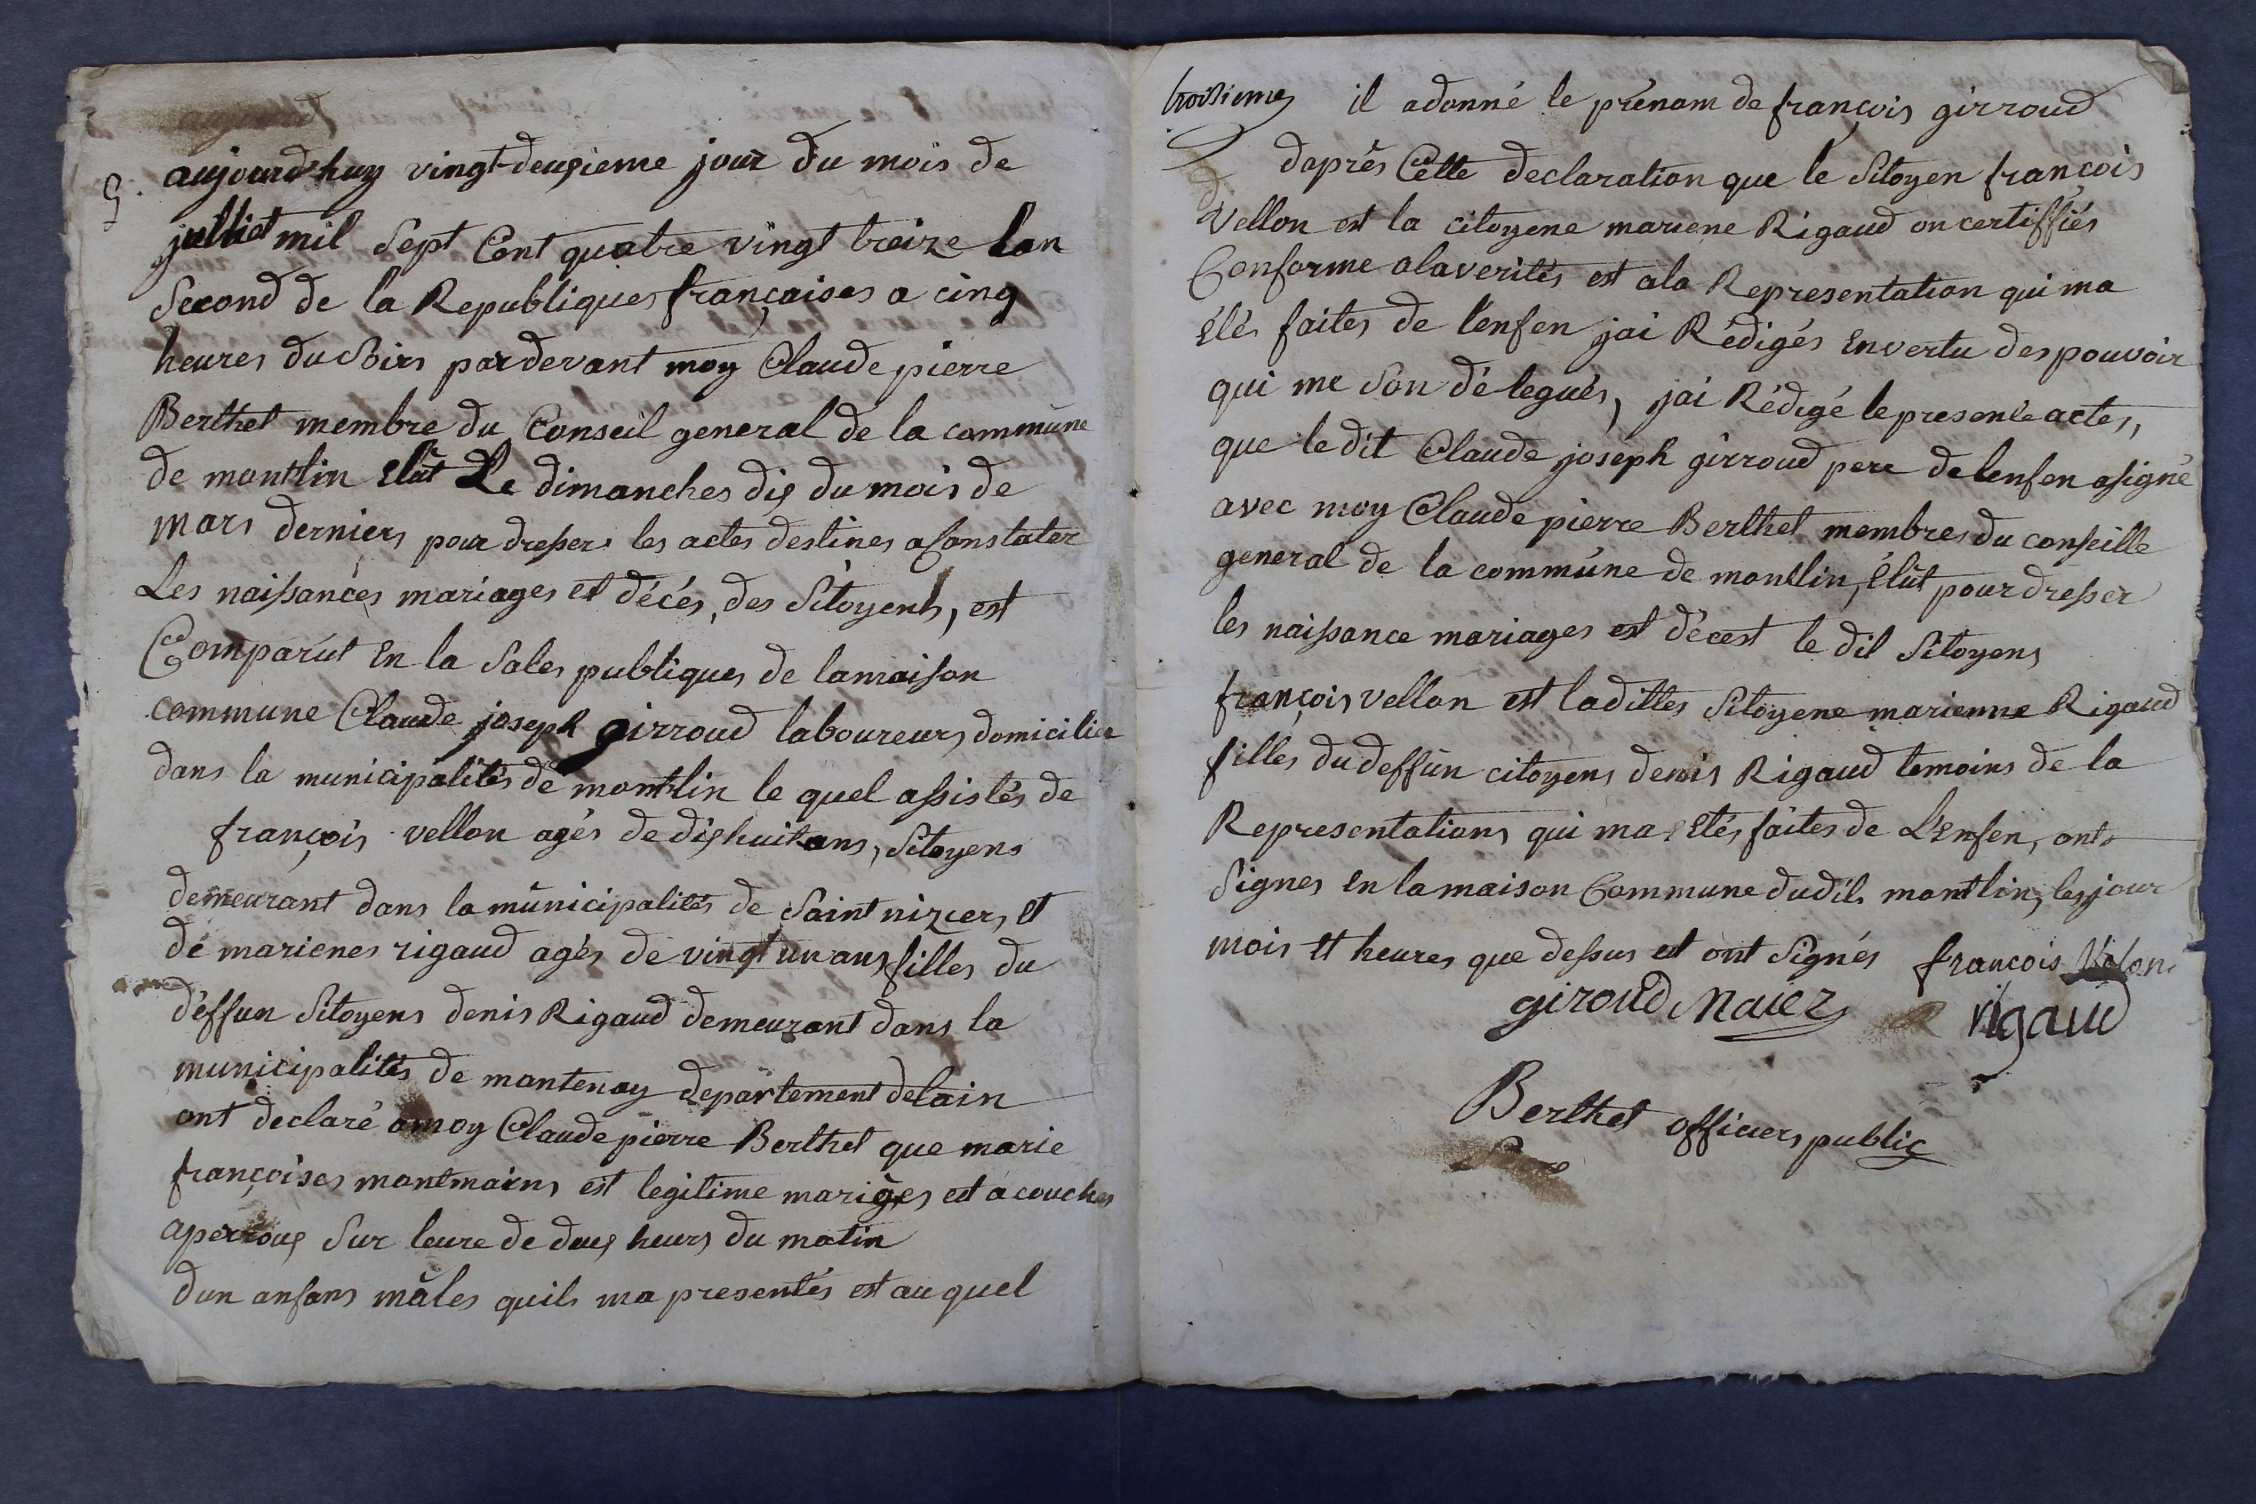 G.
aujourd'huy vingt-deuxieme jour du mois de
julliet mil Sept Cent quatre vingt treize lan
Second de la Republiques françaises a cinq
heures du Soirs pardevant moy Claude pierre
Berthet membre du Conseil general de la commune
de montlin Elût Le dimanches dix du mois de
mars derniers pour dresser les actes destines a Constater
Les naissances mariages et décés, des Sitoyens, est
Comparut En la Sales publiques de lamaison
commune Claude joseph girroud laboureurs domicilier
dans la municipalités de montlin le quel assistés de
françois vellon agés de dixhuit ans, Sitoyens
demeurant dans la municipalités de Saint nizier, et
de marienes rigaud agés de vingt un ans filles du
déffun Sitoyens denis Rigaud demeurant dans la
municipalités de mantenay departement delain
ont declaré amoy Claude pierre Berthet que marie
françoises montmains est legitime mariges est acouches
aperrous Sur leure de deux heurs du matin
dun anfans mâles quils ma presentés est au quel
troisiemes
il adonné le prénam de françois girroud
daprès Cette declaration que le Sitoyen françois
Vellon est la citoyene mariene Rigaud on certiffiés
Conforme alaverités est ala Representation qui ma
étés faites de lenfen jai Rédigés Envertu des pouvoir
qui me Son dé legués, jai Rédigé le presente actes,
que le dit Claude joseph girroud pere de lenfen asigné
avec moy Claude pierre Berthet membres du conseille
general de la commúne de montlin, Élût pour dresser
les naissance mariages est décest le dit Sitoyens
françois vellon est laditte Sitoyene marienne Rigaud
filles du deffùn citoyens denis Rigaud temoins de la
Representations qui ma Etés faites de L'Enfen, ont
Signes En lamaison Commune dudit montlin, les jour
mois et heures que dessus et ont Signés françois Velon
giroud Maiez rigaud
Berthet officiers public